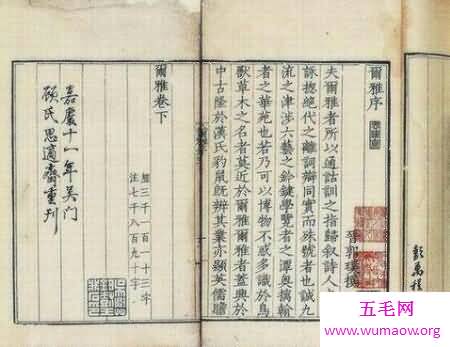 爾雅序
晉郭璞撰
夫爾雅者所以通詁訓之指歸叙詩人之興
詠揔絶代之離詞辯同實而殊號者也誠九
流之津涉六藝之鈐鍵學覽者之潭奥摛翰
者之華苑也若乃可以博物不惑多識於鳥
獸草木之名者莫近於爾雅爾雅者蓋興於
中古隆於漢氏豹鼠既辨其業亦顯英儒贍
爾雅卷下
經三千一百一十三字
注七千八百九十字
嘉慶十一年吴门
顾氏思適齋重刊
五毛网
www.wumaow.org